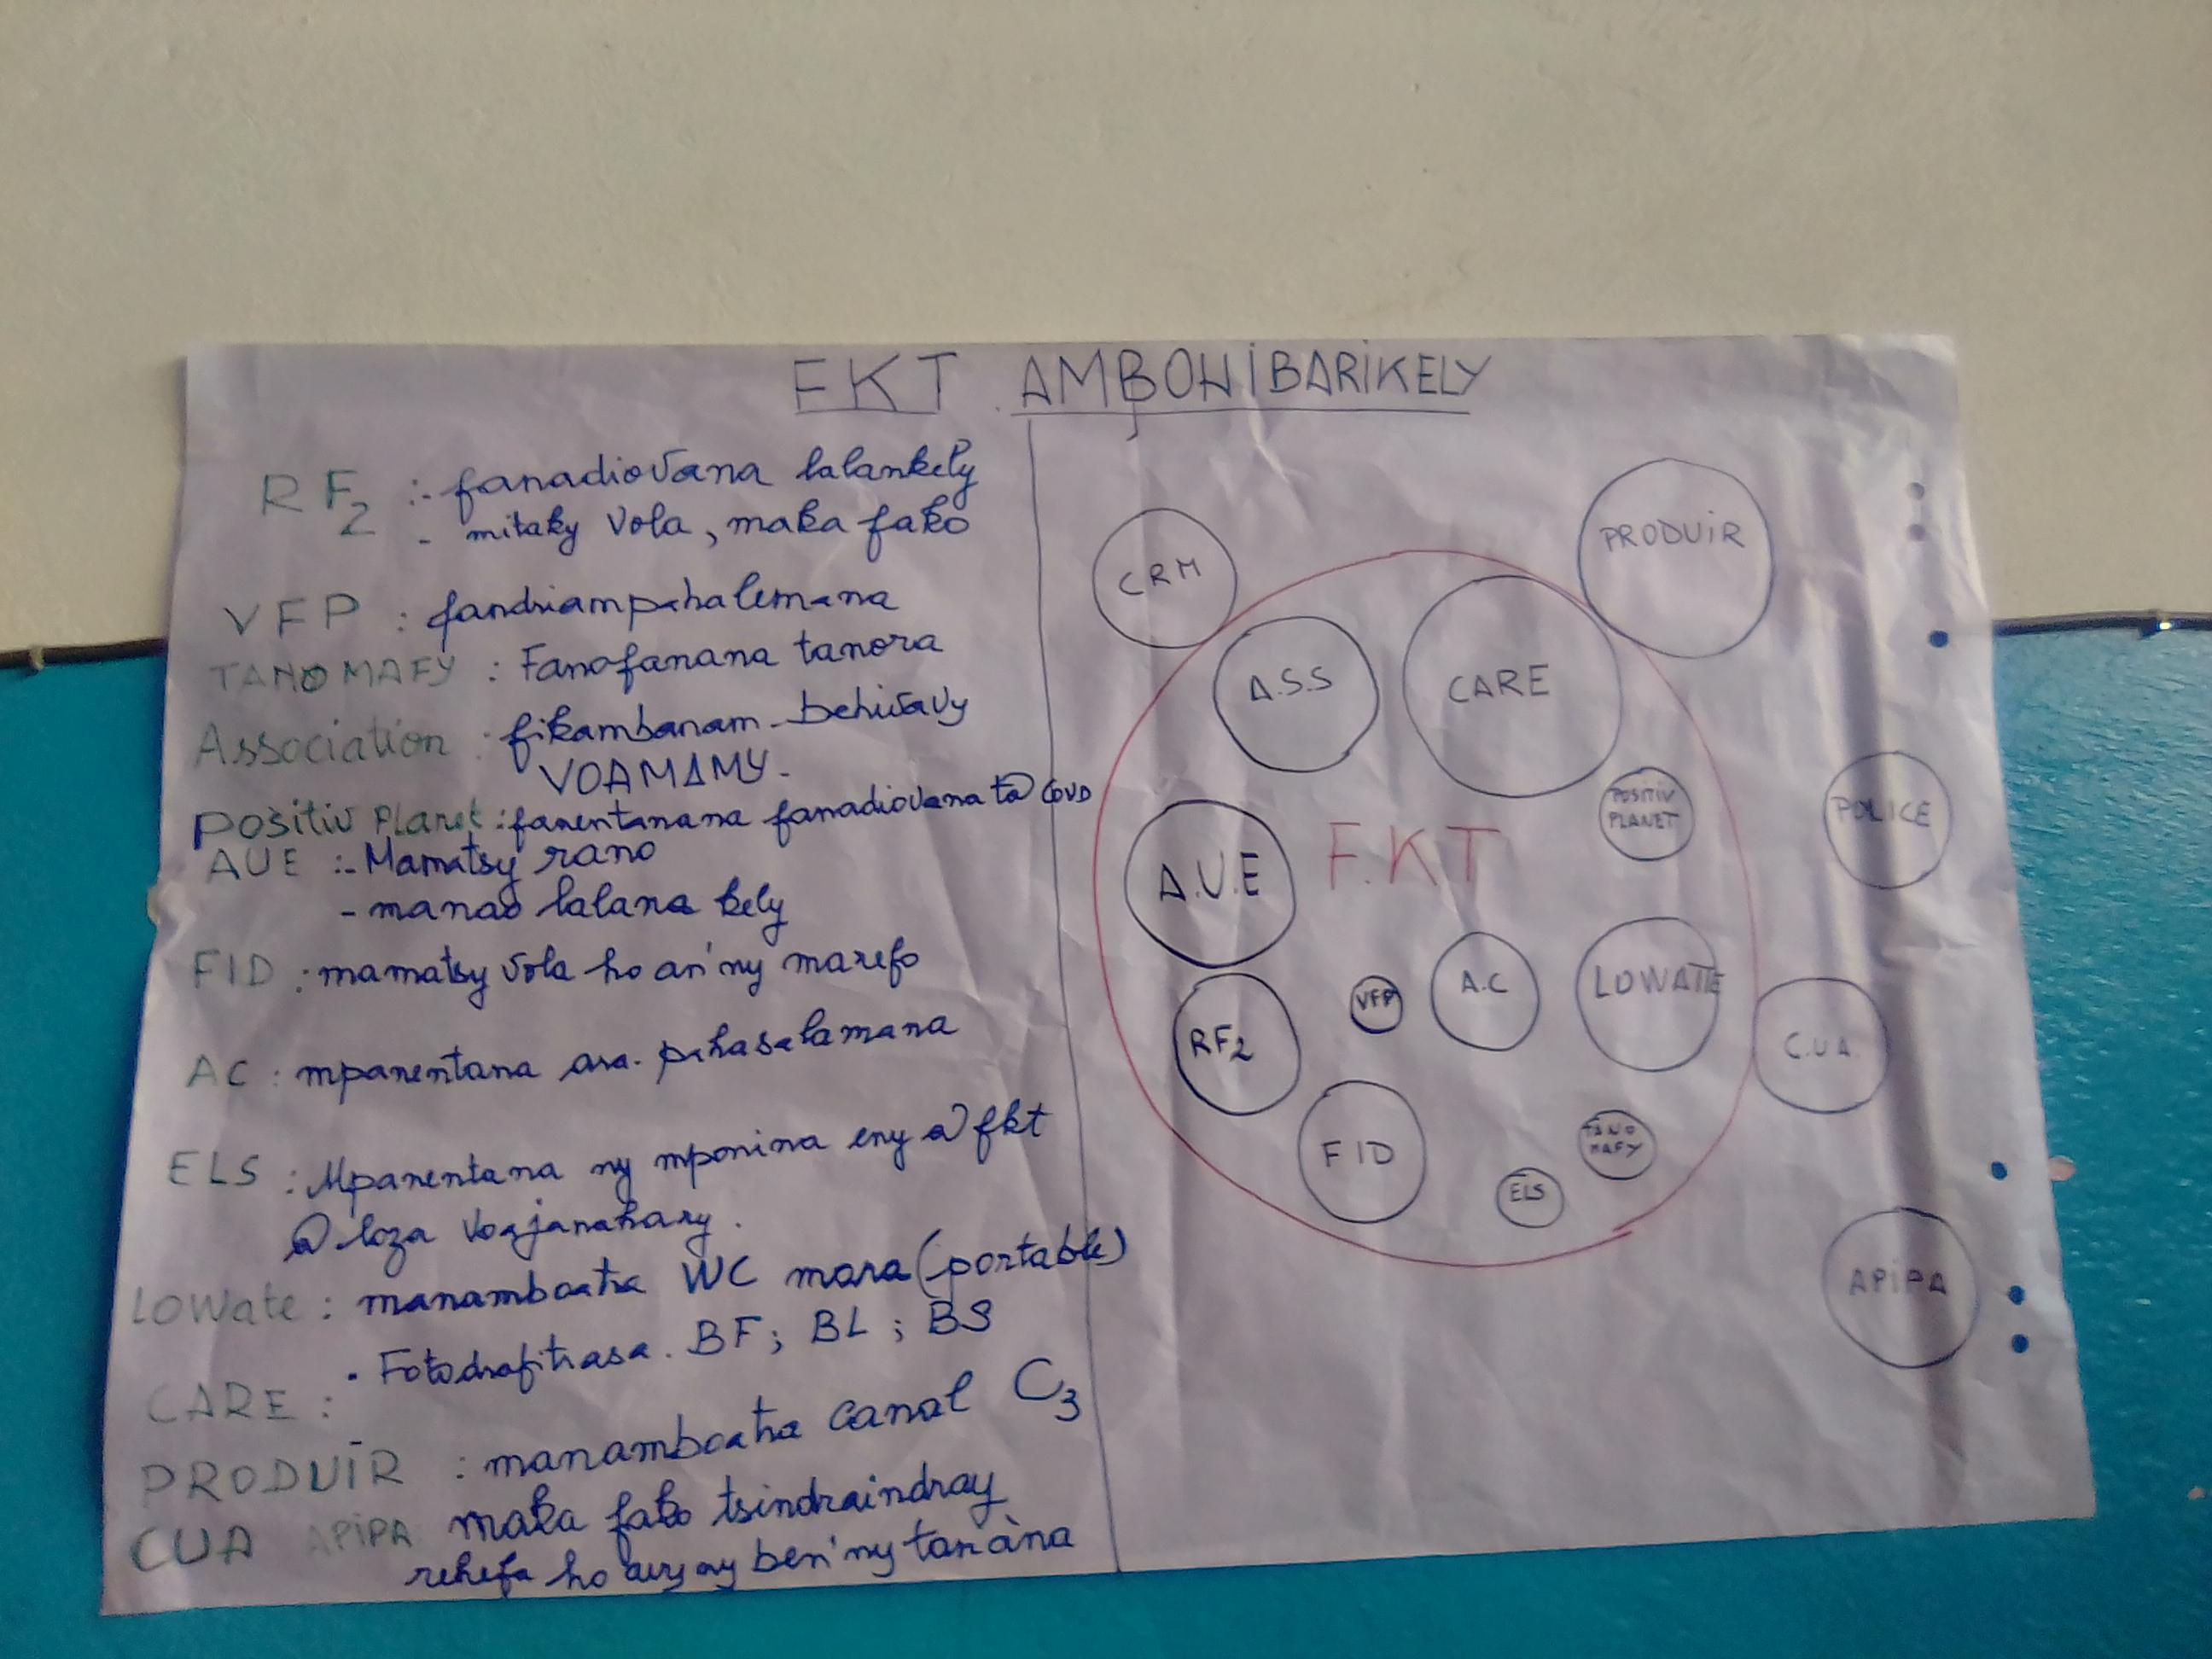 FKT AMBOHIBARIKELY
RF2 :- fanadiovana lalankely
- mitaky vola, maka fako
VFP : fandriampahalemana
TANO MAFY : Fanofanana tanora
Association : fikambanam-behivavy
VOAMAMY-
Positiv Planet : fanentanana fanadiovana
AUE :- Mamatsy rano
- manao lalana kely
FID : mamatsy vola ho an'ny marefo
AC : mpanentana ara-pahasalamana
ELS : Mpanentana ny mponina eny @ fkt
@ loza voajanahary.
LOWate : manamboatra WC mora (portable)
• Fotodrafitrasa. BF; BL; BS
CARE :
PRODUIR : manamboatra canal C3
CUA APIPA maka fako tsindraindray
rehefa ho avy ny ben'ny tanàna
CRM
PRODUIR
A.S.S
CARE
POSITIV
PLANET
POLICE
A.U.E
F.K.T
VFP
A.C
LOWATTE
RF2
C.U.A.
FID
TANO
MAFY
ELS
APIPA